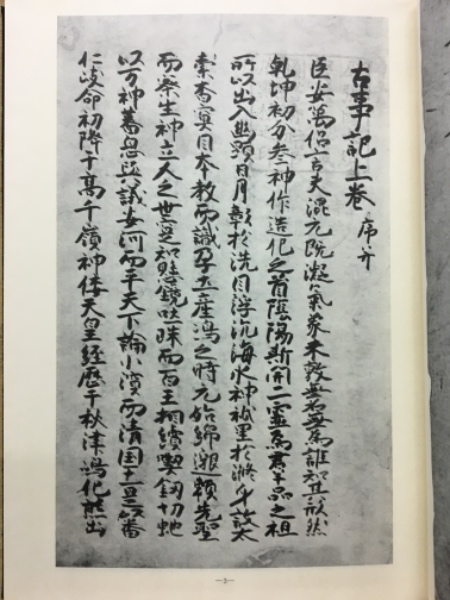 古事記上卷 序并
臣安萬侶言夫混元既凝氣象未敦無名無爲誰知其形然
乾坤初分參神作造化之首陰陽斯開二靈爲羣品之祖
所以出入幽顯日月彰於洗目浮沉海水神祇呈於滌身故太
素杳冥因本教而識孕土產嶋之時元始綿邈頼先聖
而察生神立人之世寔知懸鏡吐珠而百王相續喫釼切虵
以万神蕃息與議安河而平天下論小濱而清国土是以番
仁岐命初降于高千嶺神倭天皇經歷于秋津嶋化熊出
—3—